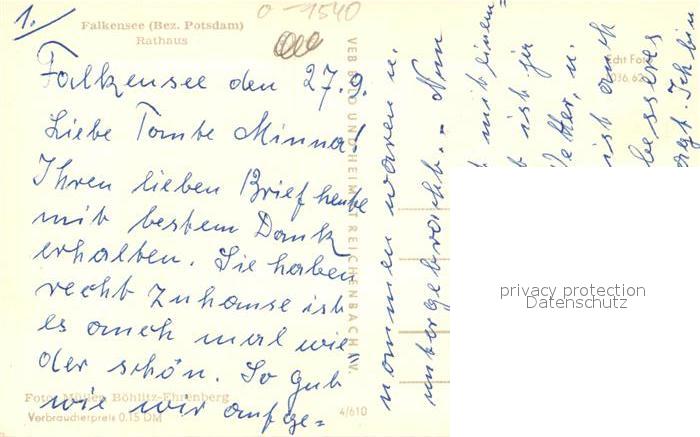 1.)
o-1540
Falkensee (Bez. Potsdam)
Rathaus
Falkensee den 27.9.
Liebe Tante Minna!
Ihren lieben Brief heute
mit bestem Dank
erhalten. Sie haben
recht Zuhause ist
es auch mal wie
der schön. So gut
wie wir aufge=
nommen waren u.
untergebracht. - Nun
mit einen=
ist ja
Wetter, u.
ist auch
besseres
Ich bin
VEB BILD UND HEIMAT REICHENBACH I. V.
Echt Foto
Foto: Müller, Böhlitz-Ehrenberg
Verbraucherpreis 0.15 DM
4/610
privacy protection
Datenschutz